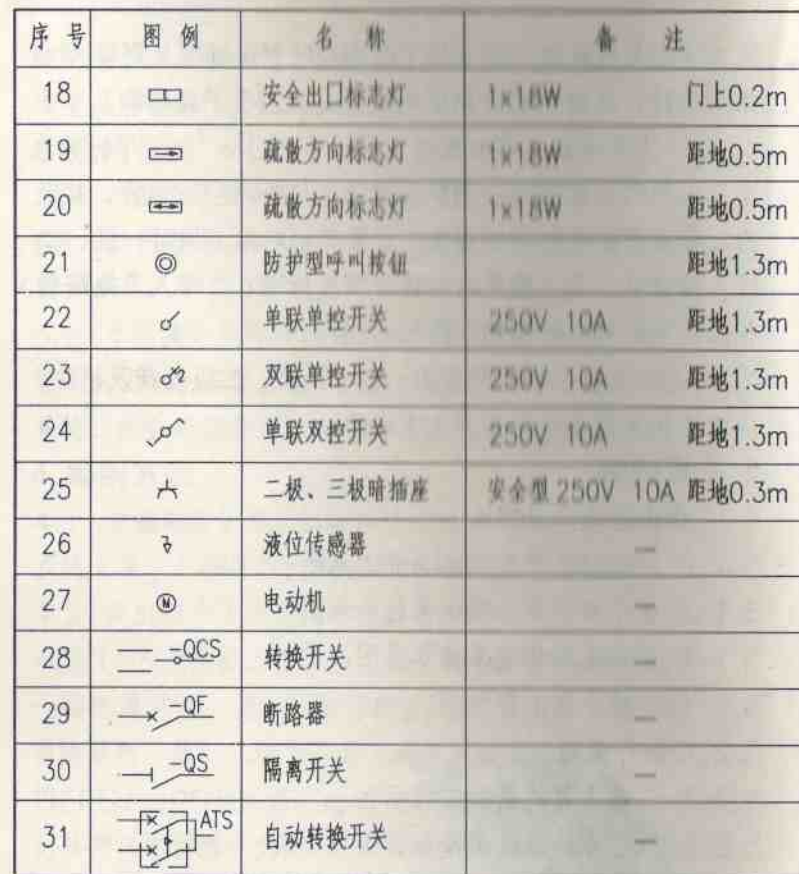 序号 图例 名称 备注
18 安全出口标志灯 1x18W 门上0.2m
19 疏散方向标志灯 1x18W 距地0.5m
20 疏散方向标志灯 1x18W 距地0.5m
21 防护型呼叫按钮 距地1.3m
22 单联单控开关 250V 10A 距地1.3m
23 双联单控开关 250V 10A 距地1.3m
24 单联双控开关 250V 10A 距地1.3m
25 二极、三极暗插座 安全型 250V 10A 距地0.3m
26 液位传感器 —
27 M 电动机 —
28 -QCS 转换开关 —
29 -QF 断路器 —
30 -QS 隔离开关 —
31 ATS 自动转换开关 —